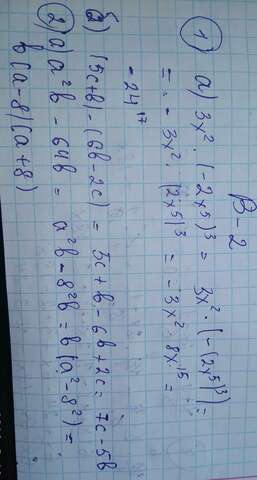 В-2
① а) 3x² · (-2x⁵)³ = 3x² · (-(2x⁵)³) =
= - 3x² · (2x⁵)³ = - 3x² · 8x¹⁵ =
-24¹⁷
б) (5c+b)-(6b-2c) = 5c+b-6b+2c = 7c-5b
② а) a²b - 64b = a²b - 8²b = b(a²-8²) =
b(a-8)(a+8)